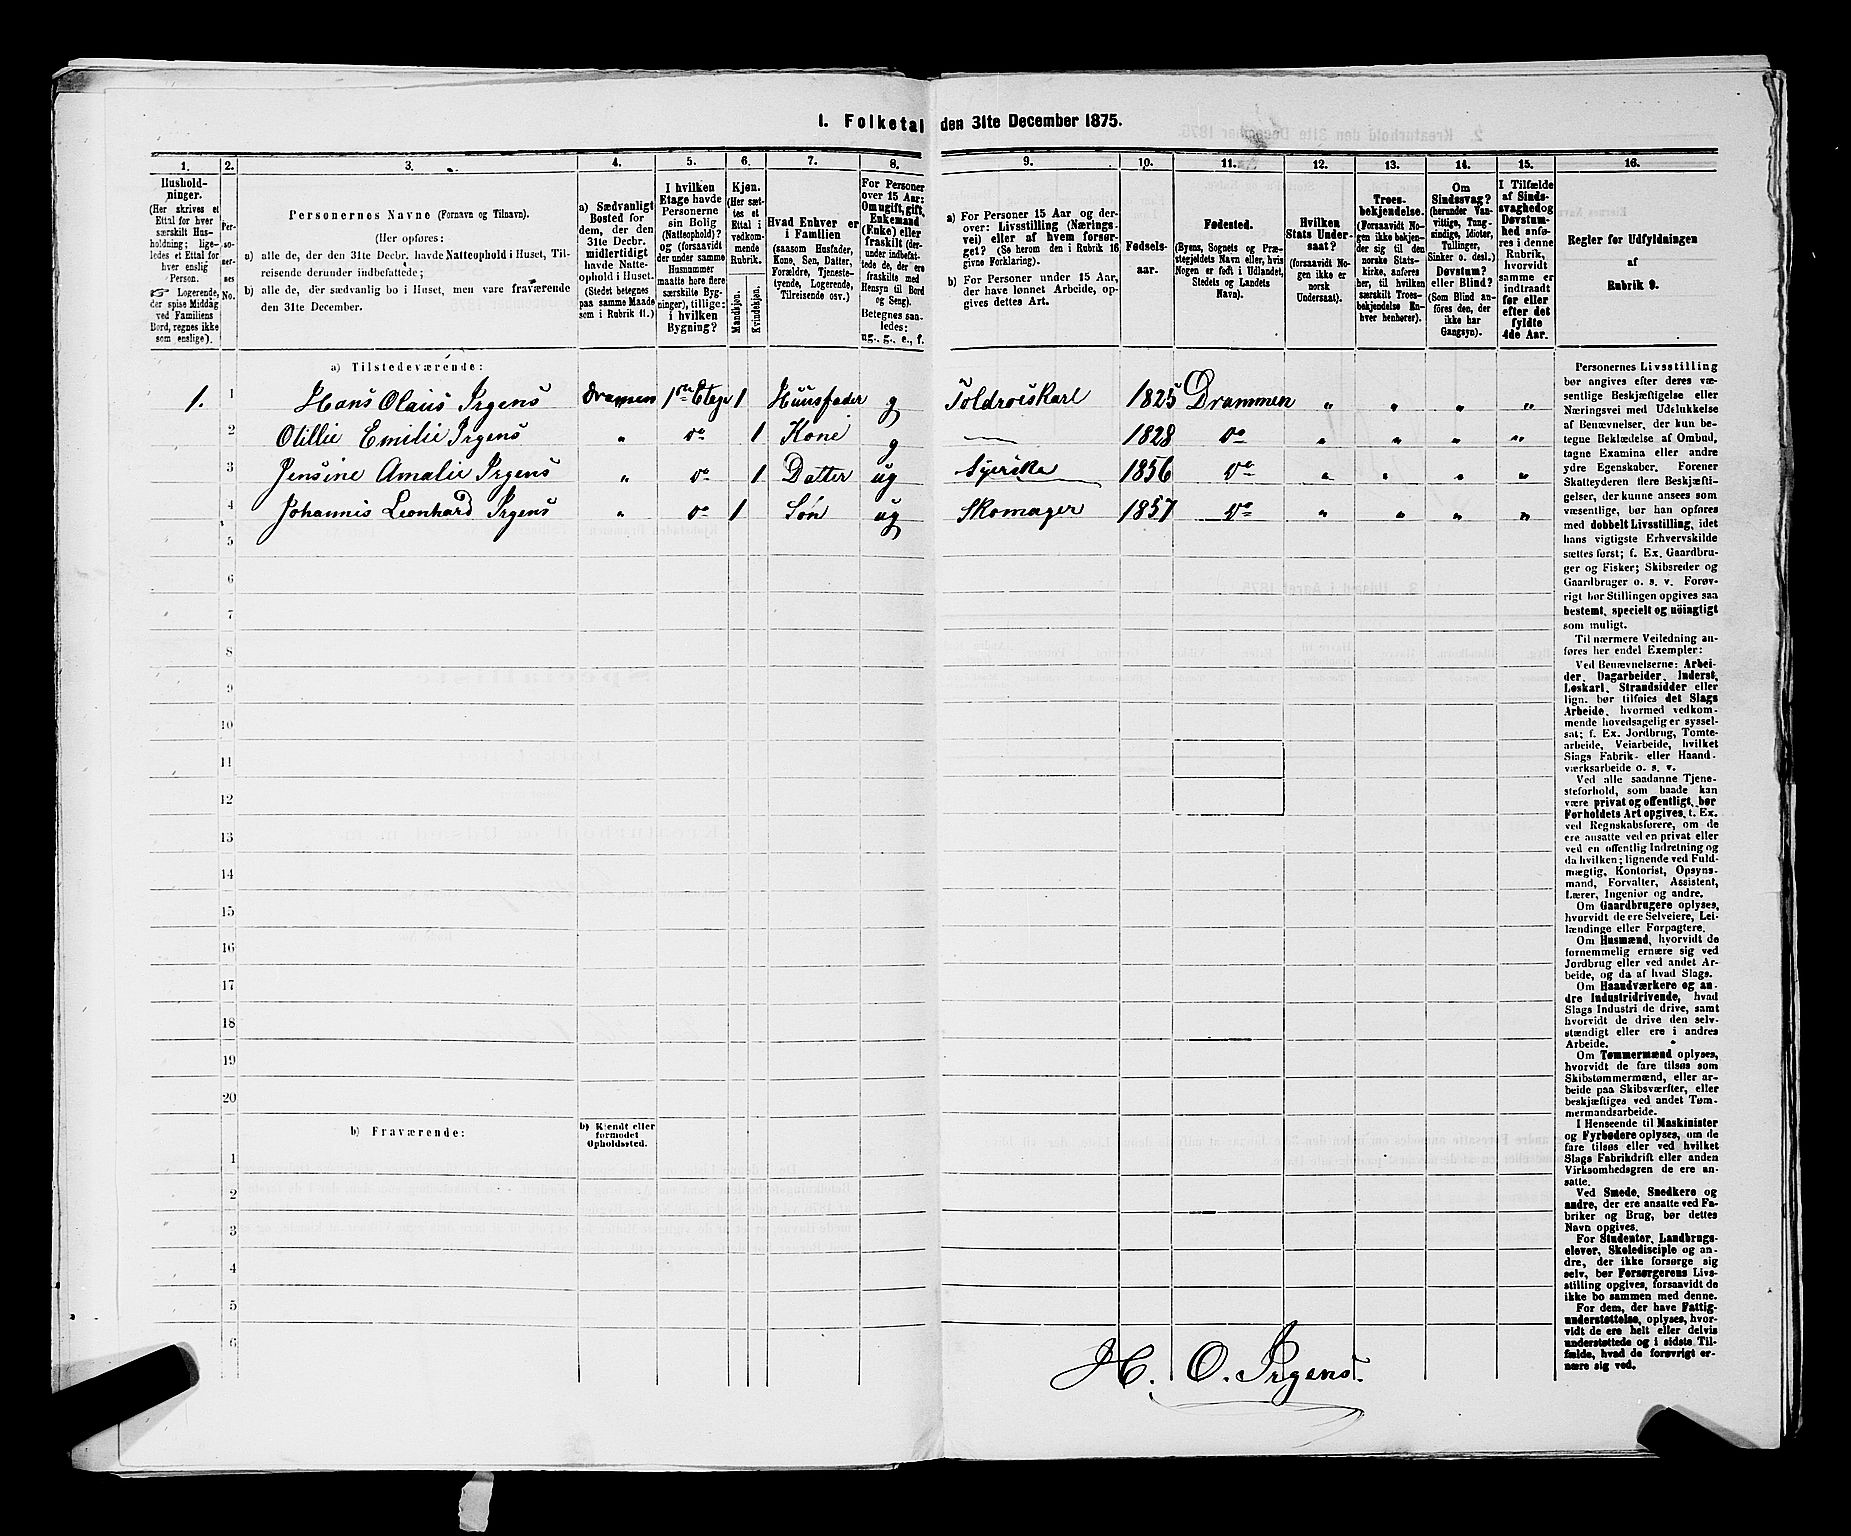 I. Folketal den 31te December 1875.
1. 2. 3. 4. 5. 6. 7. 8. 9. 10. 11. 12. 13. 14. 15. 16.
Hushold-
ninger.
(Her skrives et
Ettal for hver
særskilt Hus-
holdning; lige-
ledes et Ettal for
hver enslig
Person.
☞ Logerende,
der spise Middag
ved Familiens
Bord, regnes ikke
som enslige).
Per-
so-
ner-
nes
No.
Personernes Navne (Fornavn og Tilnavn).
(Her opføres:
a) alle de, der den 31te Decbr. havde Natteophold i Huset, Til-
reisende derunder indbefattede;
b) alle de, der sædvanlig bo i Huset, men vare fraværende
den 31te December.
a) Sædvanligt
Bosted for
dem, der den
31te Decbr.
midlertidigt
havde Natte-
ophold i Huset.
(Stedet betegnes
paa samme Maade
som i Rubrik 11.)
I hvilken
Etage havde
Personerne
sin Bolig
(Natteophold)?
og (forsaavidt
der under samme
Husnummer
maatte høre flere
særskilte Byg-
ninger), tillige:
i hvilken
Bygning?
Kjøn.
(Her sæt-
tes et
Ettal i
vedkom-
mende
Rubrik.
Mandkjøn.
Kvindekjøn.
Hvad Enhver er
i Familien
(saasom Husfader,
Kone, Søn, Datter,
Forældre, Tjeneste-
tyende, Logerende,
Tilreisende osv.)
For Personer
over 15 Aar:
Om ugift, gift,
Enkemand
(Enke) eller
fraskilt (der-
under indbefat-
tede de, der ere
fraskilte med
Hensyn til Bord
og Seng).
Betegnes saa-
ledes:
ug., g., e., f.
a) For Personer 15 Aar og der-
over: Livsstilling (Nærings-
vei) eller af hvem forsør-
get? (Se herom den i Rubrik 16
givne Forklaring).
b) For Personer under 15 Aar,
der have lønnet Arbeide, op-
gives dettes Art.
Fødsels-
aar.
Fødested.
(Byens, Sognets og Præ-
stegjeldets Navn eller, hvis
Nogen er født i Udlandet,
Stedets og Landets
Navn).
Hvilken
Stats Under-
saat?
(forsaavidt No-
gen ikke er
norsk
Undersaat).
Troes-
bekjendelse.
(Forsaavidt No-
gen ikke bekjen-
der sig til den
norske Stats-
kirke, anføres
her, til hvilken
særskilt Troes-
bekjendelse En-
hver henhører).
Om
Sindssvag?
(herunder Van-
vittige, Tung-
sindige, Idioter,
Tullinger,
Sinker o. desl.)
Døvstum?
eller Blind?
(Som Blind an-
føres den, der
ikke har
Gangsyn).
I Tilfælde
af Sinds-
svaghed og
Døvstum-
hed anfø-
res i denne
Rubrik,
hvorvidt
samme er
indtraadt
før eller
efter det
fyldte
4de Aar.
Regler for Udfyldningen
af
Rubrik 9.
a) Tilstedeværende:
1. 1 Hans Olaus Irgens Dramen 1ste Etage 1 Huusfader g Toldroiskarl 1825 Drammen " " " "
2 Otillie Emilie Irgens " do 1 Kone g — 1828 do " " " "
3 Jensine Amalie Irgens " do 1 Datter ug Syerske 1856 do " " " "
4 Johannis Leonhard Irgens " do 1 Søn ug Skomager 1857 do " " " "
5
6
7
8
9
10
11
12
13
14
15
16
17
18
19
20
b) Fraværende:
b) Kjendt eller
formodet
Opholdssted.
1
2
3
4
5
6
Personernes Livsstilling
bør angives efter deres væ-
sentlige Beskjæftigelse eller
Næringsvei med Udelukkelse
af Benævnelser, der kun be-
tegne Beklædelse af Ombud,
tagne Examina eller andre
ydre Egenskaber. Forener
Skatteyderen flere Beskjæfti-
gelser, der kunne ansees som
væsentlige, bør han opføres
med dobbelt Livsstilling, idet
hans vigtigste Erhvervskilde
sættes først; f. Ex. Gaardbru-
ger og Fisker; Skibsreder og
Gaardbruger o. s. v. Forøv-
rigt bør Stillingen opgives saa
bestemt, specielt og nöiagtigt
som muligt.
Til nærmere Veiledning an-
føres her endel Exempler:
Ved Benævnelserne: Arbei-
der, Dagarbeider, Inderst,
Løskarl, Strandsidder eller
lign. bør tilføies det Slags
Arbeide, hvormed vedkom-
mende hovedsagelig er syssel-
sat; f. Ex. Jordbrug, Tomte-
arbeide, Veiarbeide, hvilket
Slags Fabrik- eller Haand-
værksarbeide o. s. v.
Ved alle saadanne Tjene-
steforhold, som baade kan
være privat og offentligt, bør
Forholdets Art opgives, t. Ex.
ved Regnskabsførere, om de
ere ansatte ved en privat eller
ved en offentlig Indretning og
da hvilken; lignende ved Fuld-
mægtig, Kontorist, Opsyns-
mand, Forvalter, Assistent,
Lærer, Ingeniør og andre.
Om Gaardbrugere oplyses,
hvorvidt de ere Selveiere, Lei-
lændinge eller Forpagtere.
Om Husmænd, hvorvidt de
fornemmelig ernære sig ved
Jordbrug eller ved andet Ar-
beide, og da af hvad Slags.
Om Haandværkere og an-
dre Industridrivende, hvad
Slags Industri de drive, samt
hvorvidt de drive den selv-
stændigt eller ere i andres
Arbeide.
Om Tømmermænd oplyses,
hvorvidt de fare tilsøs som
Skibstømmermænd, eller ar-
beide paa Skibsværfter, eller
beskjæftiges ved andet Tøm-
mermandsarbeide.
I Henseende til Maskinister
og Fyrbødere oplyses, om de
fare tilsøs eller ved hvilket
Slags Fabrikdrift eller anden
Virksomhedsgren de ere an-
satte.
Ved Smede, Snedkere og
andre, der ere ansatte ved Fa-
briker og Brug, bør dettes
Navn opgives.
For Studenter, Landbrugs-
elever, Skoledisciple og an-
dre, der ikke forsørge sig
selv, bør Forsørgerens Livs-
stilling opgives, forsaavidt de
ikke bo sammen med denne.
For dem, der have Fattig-
understøttelse, oplyses, hvor-
vidt de ere helt eller delvis
understøttede og i sidste Til-
fælde, hvad de forøvrigt er-
nære sig ved.
H. O. Irgens.